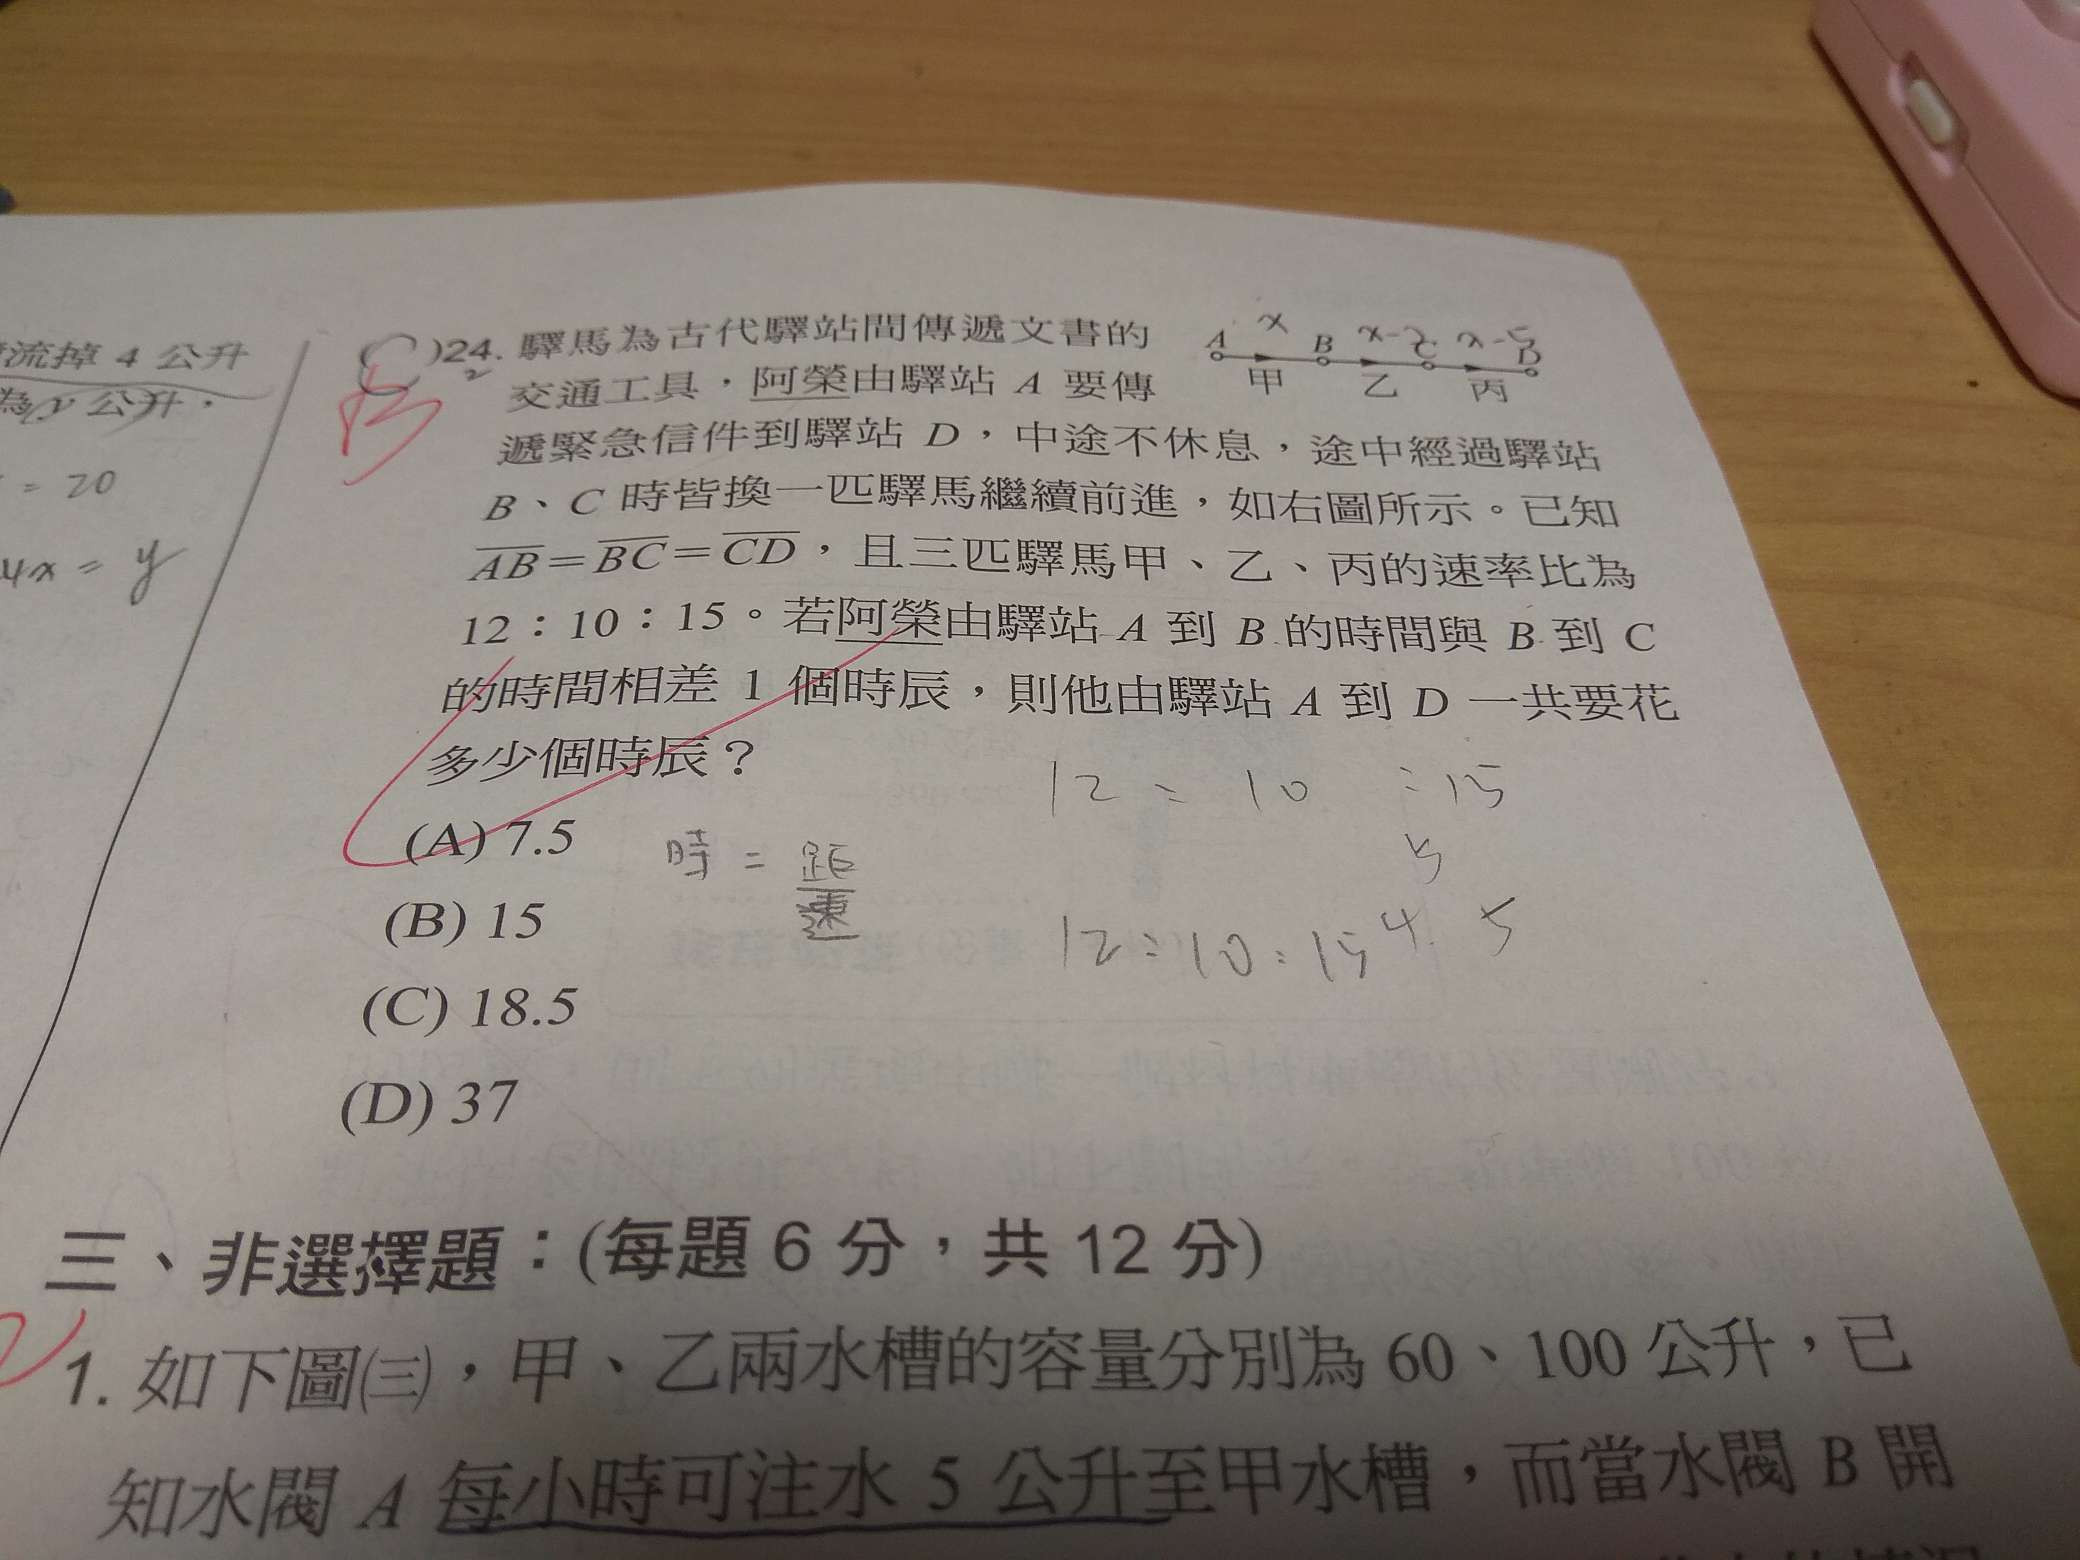 流掉 4 公升
為 y 公升，
= 20
4x = y
(C)24. 驛馬為古代驛站間傳遞文書的
B
交通工具，阿榮由驛站 A 要傳
A x B x-2 C x-5 D
甲 乙 丙
遞緊急信件到驛站 D，中途不休息，途中經過驛站
B、C 時皆換一匹驛馬繼續前進，如右圖所示。已知
AB=BC=CD，且三匹驛馬甲、乙、丙的速率比為
12：10：15。若阿榮由驛站 A 到 B 的時間與 B 到 C
的時間相差 1 個時辰，則他由驛站 A 到 D 一共要花
多少個時辰？
12 : 10 : 15
(A) 7.5
時 = 距
速
(B) 15
12 : 10 : 15 4. 5
(C) 18.5
(D) 37
三、非選擇題：(每題 6 分，共 12 分)
1. 如下圖(三)，甲、乙兩水槽的容量分別為 60、100 公升，已
知水閥 A 每小時可注水 5 公升至甲水槽，而當水閥 B 開